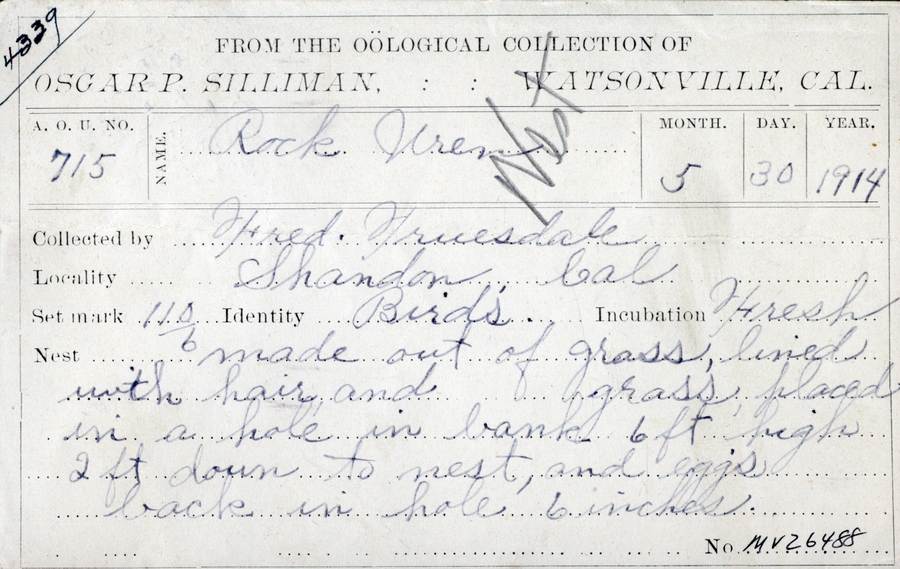 4339
FROM THE OÖLOGICAL COLLECTION OF
OSCAR P. SILLIMAN, : : WATSONVILLE, CAL.
Nest
A. O. U. NO. NAME. MONTH. DAY. YEAR.
715 Rock Wren 5 30 1914
Collected by Fred. Truesdale
Locality Shandon, Cal
Set mark 110/6 Identity Birds. Incubation Fresh
Nest made out of grass, lined
with hair, and grass, placed
in a hole in bank 6 ft high
2 ft down to nest, and eggs
back in hole 6 inches.
No MVZ6488